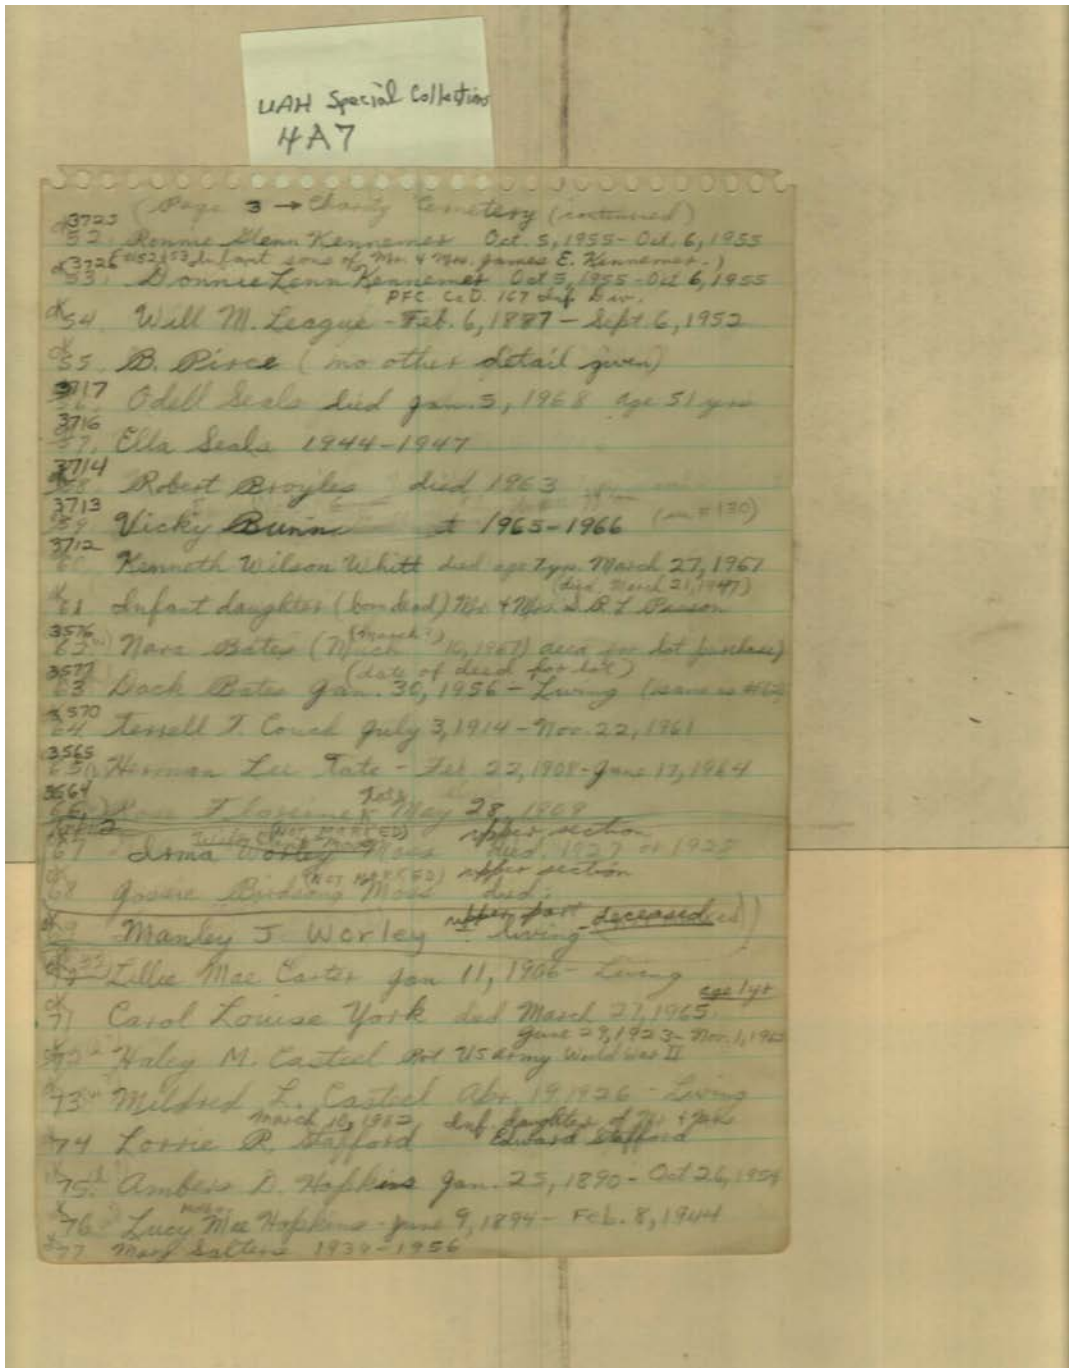 UAH Special Collections
4A7
(Page 3 → Charity Cemetery (continued)
3725
52. Ronnie Glenn Kennemer Oct. 5, 1955 - Oct. 6, 1955
3726 (#52 & 53 Infant sons of Mr. & Mrs. James E. Kennemer.)
53. Donnie Lenn Kennemer Oct 5, 1955 - Oct 6, 1955
PFC. Co D. 167 Inf. Div.
54. Will M. League - Feb. 6, 1887 - Sept 6, 1952
55. B. Pirce (no other detail given)
3717
Odell Seals died Jan. 5, 1968 age 51 yrs
3716
57. Ella Seals 1944-1947
3714
58 Robert Broyles died 1963
3713
59 Vicky Bunn 1965-1966 (see #130)
3712
60 Kenneth Wilson Whitt died age 7 yrs. March 27, 1967
(died March 21, 1947)
61 Infant daughter Mr. & Mrs.
3576 (March?)
62 Nara Bates (Much 10, 1967) for lot purchase)
3577 (date of deed for lot)
63 Dock Bates Jan. 30, 1956 - Living (same as #62)
3570
64 Terrell T. Couch July 3, 1914 - Nov. 22, 1961
3565
65 Herman Lee Tate - Feb 22, 1908 - June 17, 1964
3564
66 May 28, 1909
(NOT MARKED) upper section
67 Irma Worley Moss died 1927 or 1928
(NOT MARKED) upper section
68 Gossie Birdsong Moss died:
69 Manley J. Worley upper part living - deceased
Lillie Mae Carter Jan 11, 1906 - Living
age 1 yr
71 Carol Louise York died March 27, 1965.
June 29, 1923 - Nov. 1, 1962
72 Haley M. Casteel Pvt US Army World War II
73 Mildred L. Casteel Apr. 19, 1926 - Living
March 10, 1952 Inf. daughter of Mr & Mrs
74 Lorrie R. Stafford Edward Stafford
75. Ambers D. Hopkins Jan. 25, 1890 - Oct 26, 1954
76 Lucy Mae Hopkins - June 9, 1894 - Feb. 8, 1944
77 Mary Salters 1936-1956